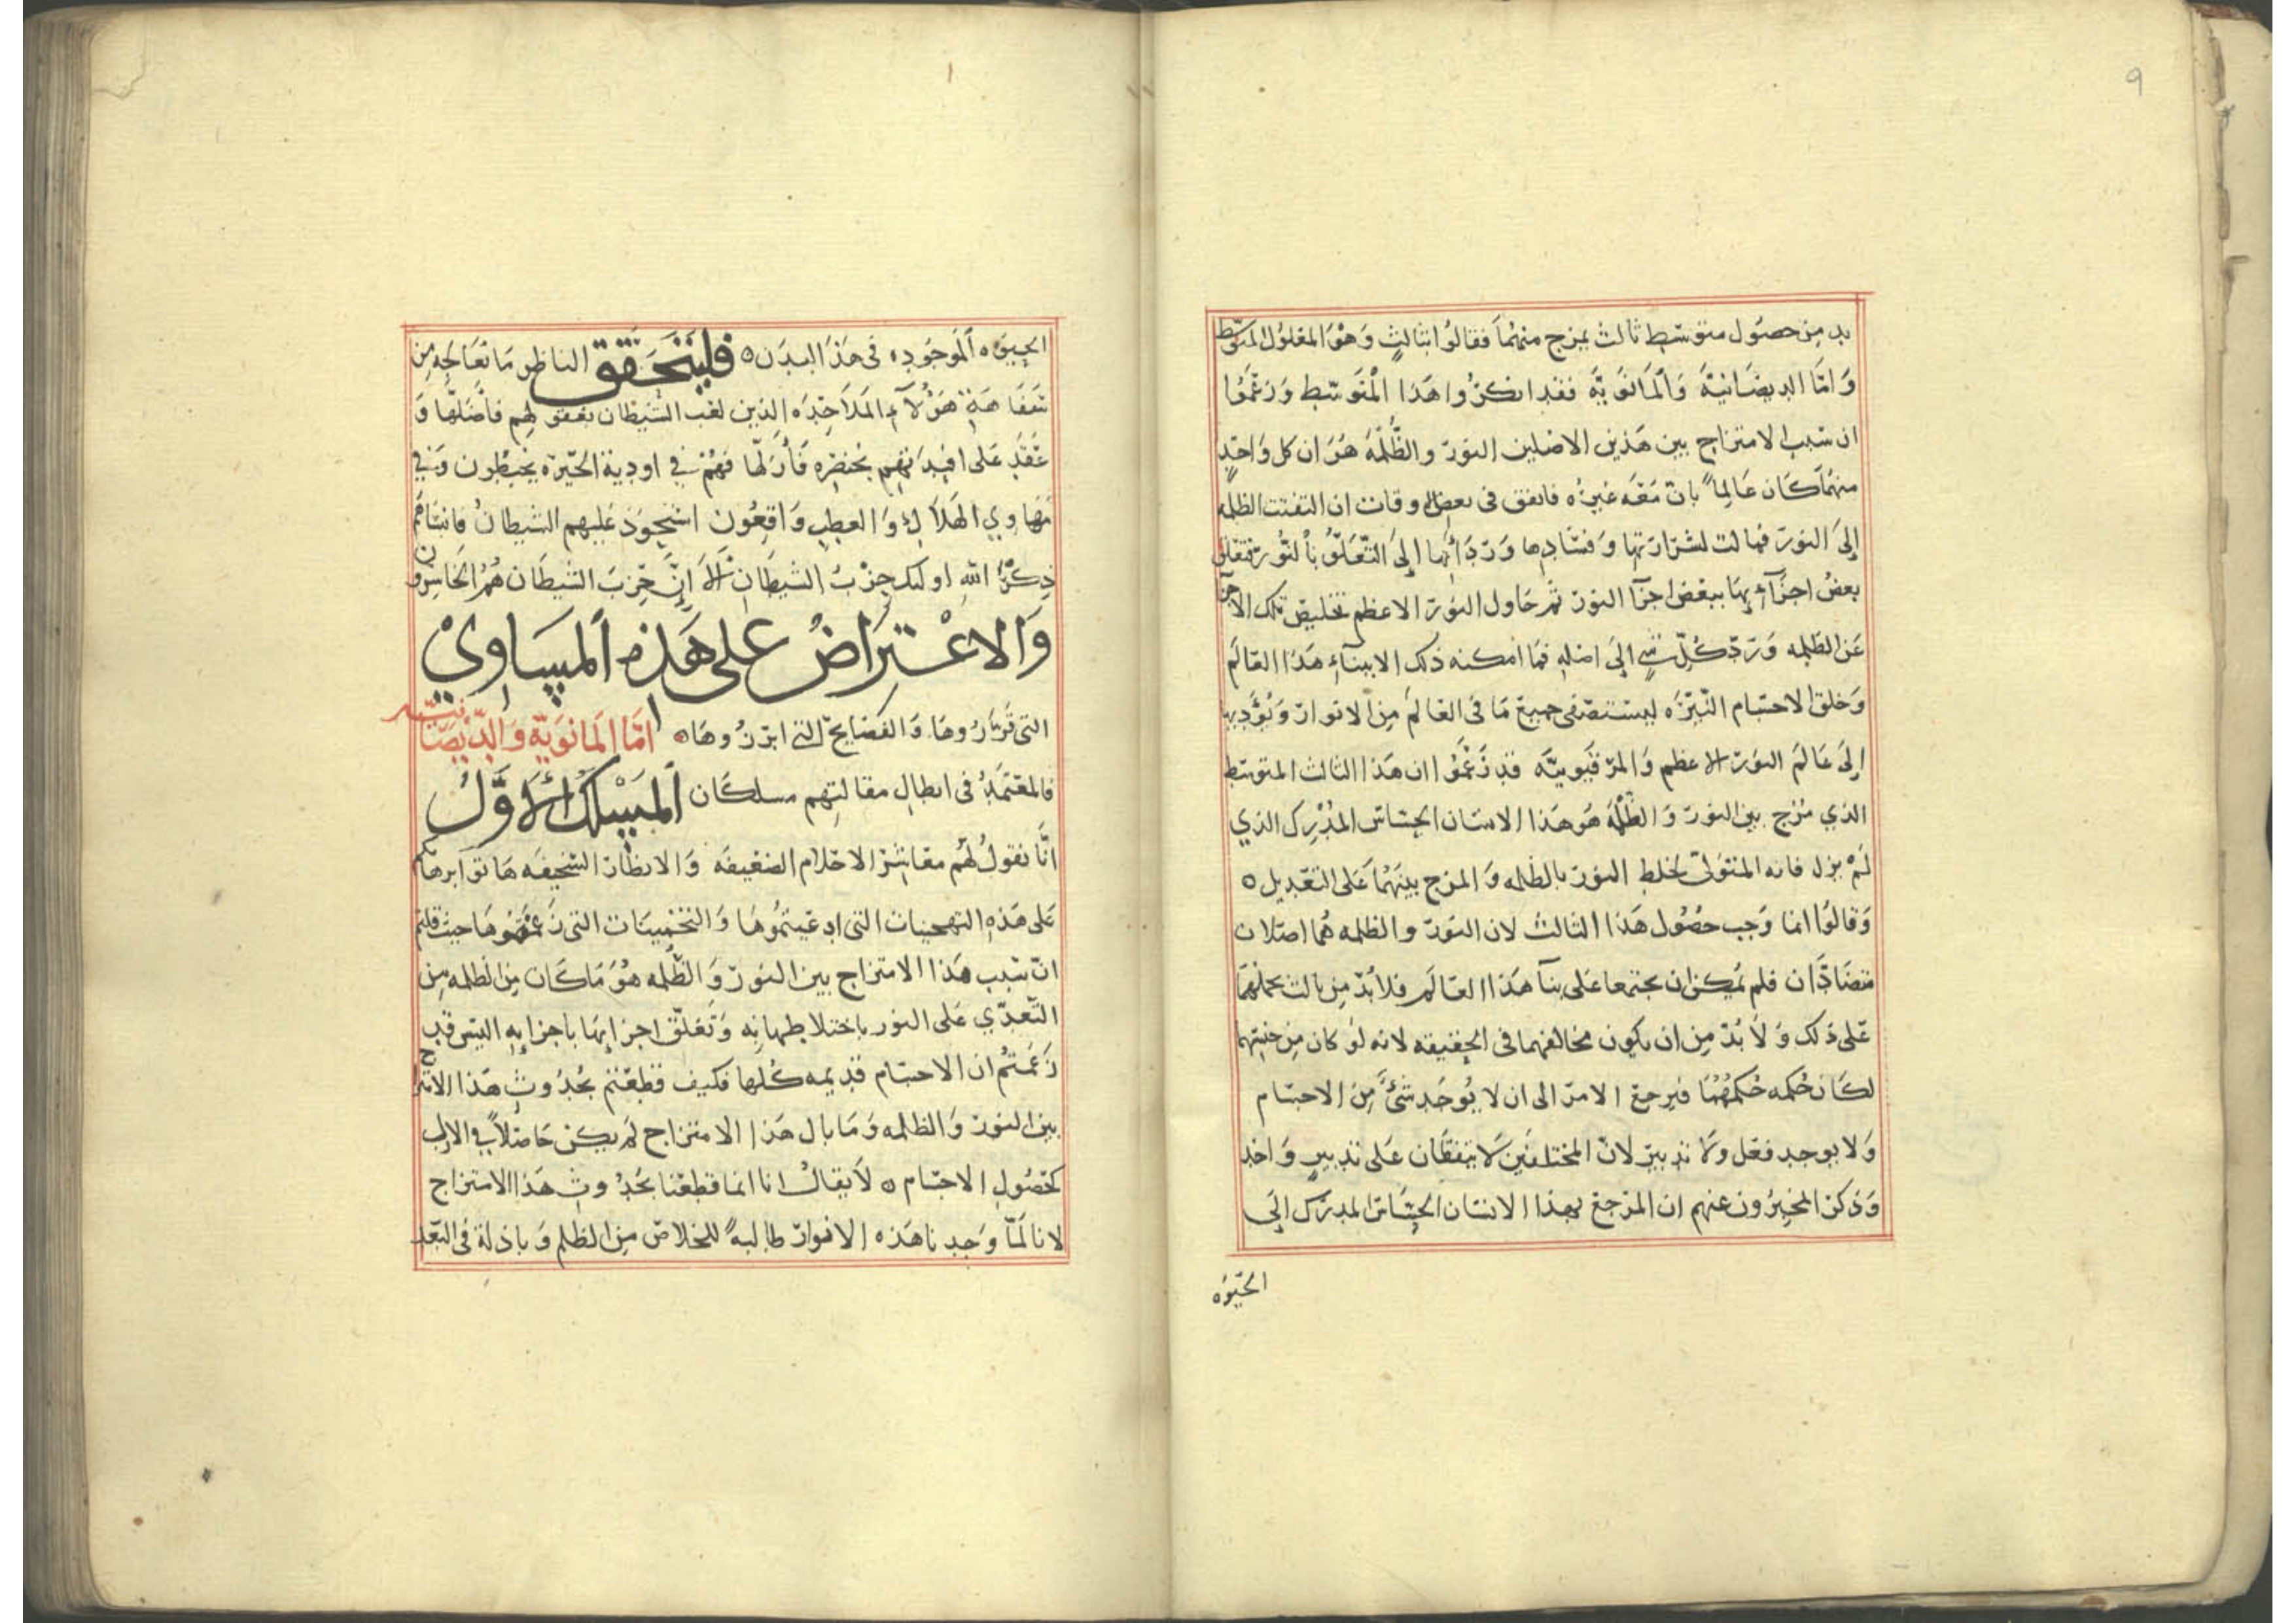 ٩
بد من حصول متوسط ثالث يمزج منهما فقالوا بثالث وهو المعلول المتوسط
وَامَّا الديصَانيَّه وَالمَانَويَّه فقد انكرُوا هَذا المتَوسّط وَزعَمُوا
ان سَبب الامتزاج بين هَذين الاصلين النورَ والظُّلمَه هُوَ ان كل وَاحدٍ
منهُمَا كَان عَالِماً بان مَعَه غيرُه فاتفق فى بعض الاوقات ان التفتت الظلمه
إلىَ النورَ فمالت لشرَارَتها وَفسَادِها وَرَدَائتها إلىَ التّعَلّقُ بالنُّورِ فتعَلق
بعضُ اجزَآءِهَا ببعَض اجزَآ النورَ ثم حَاول النورَ الاعظم تخليصَ تلك الاجزآ
عَن الظلمه وَرَدّ كُلّ شي الىَ اصْلِهِ فمَا امكنه ذلك الا ببنآءِ هَذَا العَالَم
وَخلق الاجسَام النّيّرَه ليسْتصَفى جميعَ مَا فى العَالم مِن الانوَارَ وَيُؤدّيها
إلىَ عَالمَ النورَ الاعظم وَالمرَقيُونيَّه قد زعَمُوا ان هَذا الثالث المتوسّط
الذي مُزج بين النورَ وَالظُلْمَه هُوَ هَذا الانسَان الحسّاسَ المُدْرِك الذي
لَمْ يزل فانه المتَوَلّى لخلط النورَ بالظلمه وَالمزج بينهُمَا عَلى التعَديل ه
وَقالُوا انما وَجب حصُول هَذا الثالث لان النوَرَ والظلمه هُما اصْلان
متضَادَّان فلم يُمكن ان يجتمعا عَلى بنآ هَذا العَالَم فلا بُدّ من ثالث يحملهُمَا
عَلى ذلك وَلاَ بُدّ مِن ان يكون مخالفهما فى الحقيقه لانه لو كان مِن جنسهما
لكَان حُكمه حُكمهُمَا فيَرجعَ الامرَ الى ان لا يُوجَد شئٌ مِّنَ الاجسَام
وَلا يوجد فعَل وَلا تدبيرَ لانَّ المختلفَين لا يتفقَان عَلى تدبيرٍ وَاحدٍ
وَذكرَ المخبرُون عنهم ان المرَجعَ بهذا الانسَان الحسَّاسَ المدرَك الىَ
الحَيوه
الحيَوه المَوجُودِه فى هَذا البدَن ه فليتحَقق الناظِر مَا نعَالجه مِن
سَفَاهَة هَؤُلآءِ المَلاَحِدَه الذين لعَب الشيطان بعقولهم فاضَلهَّا وَ
عَقَدَ عَلى افئِدَتِهم بخنصِرِه فَأزَلّها فهُمْ في اودية الحَيرة يخبطُون وَفي
مَهَاوِي الهَلاَك وَالعطب وَاقِعُون استحوَذ عَليهم الشيطانُ فانسَاهُم
ذِكرَ اللهِ اولئك حِزْبُ الشيطَان اَلاَ إِنَّ حِزبَ الشيطَان هُمُ الخَاسِرُون
وَالاعْتِرَاضُ عَلى هَذِه المسَاوِيْ
التى قرَّرُوهَا وَالفَضَايحِ التى ابرَزُوهَا ه امَّا المَانَويّه وَالدّيصَانيّه
فالمعْتَمَدُ فى ابطالِ مقالتِهم مسلكَان المسْلك الاَوَّلُ
انَّا نقولُ لهُم معَاشِرَ الاحلام الضعَيفَه وَالانظارَ السَّخيفَه هَاتوا برهَانكم
عَلى هَذِه التهجينات التى ادعَيتمُوهَا وَالتخمِينَات التى زَعَمْتمُوهَا حيث قلتم
انّ سَبب هَذا الامتزاج بين النورَ وَالظّلمه هُوَ مَا كَان مِن الظلمه مِن
التّعَدّي عَلى النور باختلاطها بِه وَتَعَلّق اجزايهَا باجزايِهِ اليسَ قد
زَعَمتمُ ان الاجسَام قدِيمه كُلها فكيف قطعَتم بحُدُوثِ هَذا الامتزاج
بين النورَ وَالظلمه وَمَا بال هَذا الامتزاج لم يكن حَاصِلاً في الازل
كحصُول الاجسَام ه لاَ يقال انا انما قطعَنا بحُدوثِ هَذا الامتزاج
لانا لمَّا وَجدناهَذه الانوارَ طالبه للخلاصَ مِن الظلم وَباذلة فى البعَد